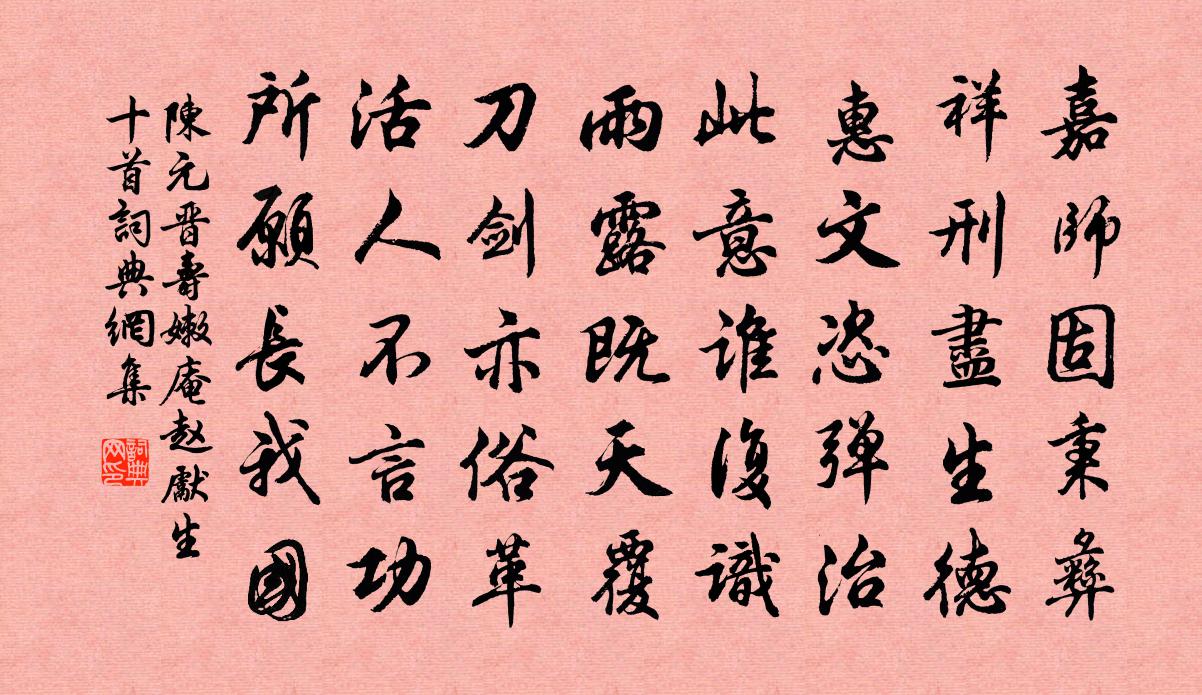 嘉師固秉彝
祥刑盡生德
惠文恣弹治
此意谁復識
雨露既天覆
刀劍亦俗革
活人不言功
所願長我國
陳元晋壽嫩庵赵獻生
十首詞典網集
詞典网印